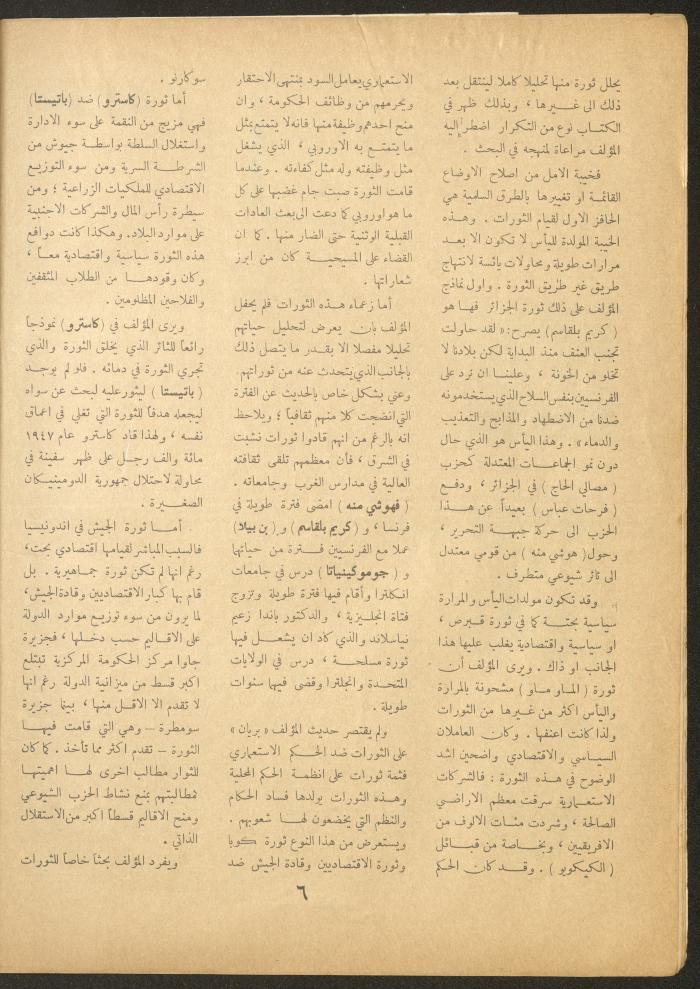 يحلل ثورة منها تحليلا كاملا لينتقل بعد
ذلك الى غيرها ، وبذلك ظهر في
الكتاب نوع من التكرار اضطر إليه
المؤلف مراعاة لمنهجه في البحث .
فخيبة الامل من اصلاح الاوضاع
القائمة او تغييرها بالطرق السلمية هي
الحافز الاول لقيام الثورات . وهذه
الخيبة المولدة لليأس لا تكون الا بعد
مرارات طويلة ومحاولات يائسة لانتهاج
طريق غير طريق الثورة . واول نماذج
المؤلف على ذلك ثورة الجزائر فها هو
( كريم بلقاسم) يصرح: « لقد حاولت
تجنب العنف منذ البداية لكن بلادنا لا
تخلو من الخونة ، وعلينا ان نرد على
الفرنسيين بنفس السلاح الذي يستخدمونه
ضدنا من الاضطهاد والمذابح والتعذيب
والدماء » . وهذا اليأس هو الذي حال
دون نمو الجماعات المعتدلة كحزب
( مصالي الحاج ) في الجزائر ، ودفع
( فرحات عباس ) بعيداً عن هذا
الحزب الى حركة جبهة التحرير ،
وحول ( هوشي منه ) من قومي معتدل
الى ثائر شيوعي متطرف .
وقد تكون مولدات اليأس والمرارة
سياسية بحتة كما في ثورة قبرص ،
او سياسية واقتصادية يغلب عليها هذا
الجانب او ذاك . ويرى المؤلف أن
ثورة ( الماو ماو ) مشحونة بالمرارة
واليأس اكثر من غيرها من الثورات
ولذا كانت اعنفها . وكان العاملان
السياسي والاقتصادي واضحين اشد
الوضوح في هذه الثورة : فالشركات
الاستعمارية سرقت معظم الاراضي
الصالحة ، وشردت مئات الالوف من
الافريقيين ، وبخاصة من قبائل
( الكيكويو ) . وقد كان الحكم
الاستعماري يعامل السود بمنتهى الاحتقار
ويحرمهم من وظائف الحكومة ، وان
منح احدهم وظيفة منها فانه لا يتمتع بمثل
ما يتمتع به الاوروبي ، الذي يشغل
مثل وظيفته وله مثل كفاءته . وعندما
قامت الثورة صبت جام غضبها على كل
ما هو اوروبي كما دعت الى بعث العادات
القبلية الوثنية حتى الضار منها . كما ان
القضاء على المسيحية كان من ابرز
شعاراتها .
أما زعماء هذه الثورات فلم يحفل
المؤلف بأن يعرض لتحليل حياتهم
تحليلا مفصلا الا بقدر ما يتصل ذلك
بالجانب الذي يتحدث عنه من ثوراتهم .
وعني بشكل خاص بالحديث عن الفترة
التي انضجت كلا منهم ثقافياً ؛ ويلاحظ
انه بالرغم من انهم قادوا ثورات نشبت
في الشرق ، فأن معظمهم تلقى ثقافته
العالية في مدارس الغرب وجامعاته .
( فهوشي منه ) امضى فترة طويلة في
فرنسا ، و ( كريم بلقاسم ) و ( بن بيلا )
عملا مع الفرنسيين فترة من حياتها
و ( جوموكينياتا ) درس في جامعات
انكلترا وأقام فيها فترة طويلة وتزوج
فتاة انجليزية ، والدكتور باندا زعيم
نياسلاند والذي كاد ان يشعل فيها
ثورة مسلحة ، درس في الولايات
المتحدة وانجلترا وقضى فيها سنوات
طويلة .
ولم يقتصر حديث المؤلف « بريان »
على الثورات ضد الحكم الاستعماري
فثمة ثورات على انظمة الحكم المحلية
وهذه الثورات يولدها فساد الحكام
والنظم التي يخضعون لها شعوبهم .
ويستعرض من هذا النوع ثورة كوبا
وثورة الاقتصاديين وقادة الجيش ضد
سوكارنو .
أما ثورة (كاسترو) ضد (باتيستا)
فهي مزيج من النقمة على سوء الادارة
واستغلال السلطة بواسطة جيوش من
الشرطة السرية ومن سوء التوزيع
الاقتصادي للملكيات الزراعية ؛ ومن
سيطرة رأس المال والشركات الاجنبية
على موارد البلاد. وهكذا كانت دوافع
هذه الثورة سياسية واقتصادية معاً ،
وكان وقودها من الطلاب المثقفين
والفلاحين المظلومين .
ويرى المؤلف في ( كاسترو ) نموذجاً
رائعاً للثائر الذي يخلق الثورة والذي
تجري الثورة في دمائه . فلو لم يوجد
( باتيستا ) ليثور عليه لبحث عن سواه
ليجعله هدفاً للثورة التي تغلي في اعماق
نفسه ، ولهذا قاد كاسترو عام ١٩٤٧
مائة والف رجل على ظهر سفينة في
محاولة لاحتلال جمهورية الدومينيكان
الصغيرة .
أما ثورة الجيش في اندونيسيا
فالسبب المباشر لقيامها اقتصادي بحت،
رغم انها لم تكن ثورة جماهيرية . بل
قام بها كبار الاقتصاديين وقادة الجيش،
لما يرون من سوء توزيع موارد الدولة
على الاقاليم حسب دخلها ، فجزيرة
جاوا مركز الحكومة المركزية تبتلع
اكبر قسط من ميزانية الدولة رغم انها
لا تقدم الا الاقل منها ، بينما جزيرة
سومطرة – وهي التي قامت فيها
الثورة – تقدم اكثر مما تأخذ . كما كان
للثوار مطالب اخرى لها اهميتها
كمطالبتهم بمنع نشاط الحزب الشيوعي
ومنح الاقاليم قسطاً اكبر من الاستقلال
الذاتي .
ويفرد المؤلف بحثاً خاصاً للثورات
٦